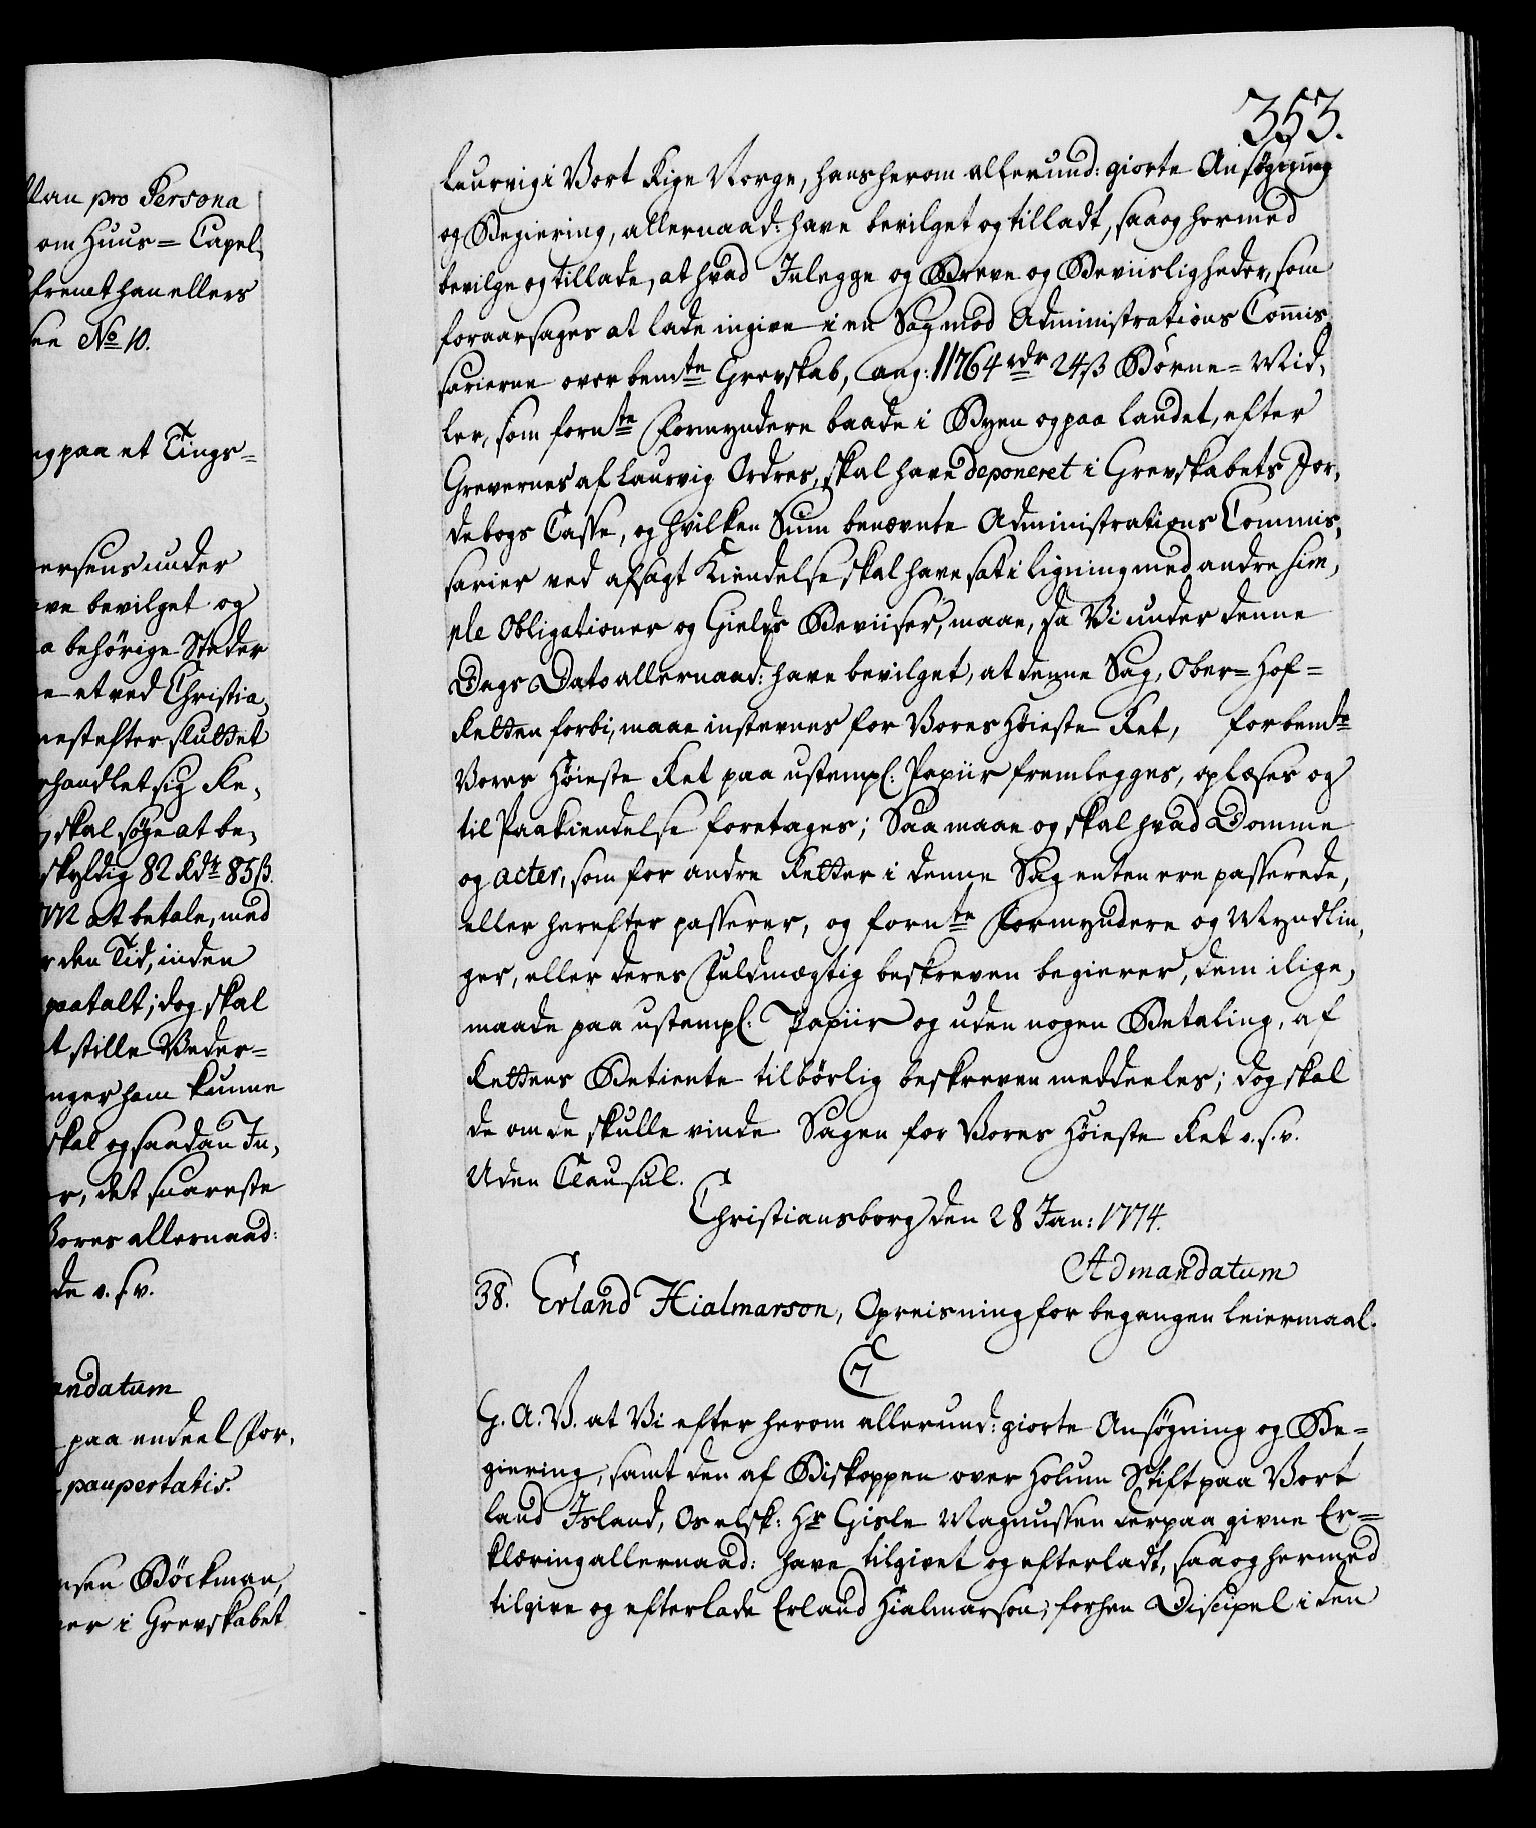 llan pro Persona
om Huus=Capel,
fremt han ellers
see No 10.
ng paa et Tings=
ersens under
ave bevilget og
a behörige Steder
e et ved Christia,
nest efter sluttet
rhandlet sig Re,
g skal søge at be,
skyldig 82 Rdr 85 ß.
M at betale, med
r den Tid, inden
paatalt; dog skal
t stille Veder=
nger ham kunne
skal og saadan In,
er, det snareste
Vores allernaad:
de o. s. v.
andatum
paa endeel For,
paupertatis.
nsen Böckman,
ner i Grevskabet
353.
Laurvig i Vort Rige Norge, hans herom allerund: giorte Ansøgning
og Begiering, allernaad: have bevilget og tilladt, saa og hermed
bevilge og tillade, at hvad Inlegge og Breve og Beviisligheder, som
foraarsages at lade ingive i en Sag mod Administrations Commis,
sarierne over bemte Grevskab, ang: 11764 rdr 24 ß Börne=Mid,
ler, som fornte Formyndere baade i Byen og paa Landet, efter
Grevernes af Laurvig Ordres, skal have deponeret i Grevskabets Jor,
debogs Casse, og hvilken Sum benævnte Administrations Commis,
sarier ved afsagt Kiendelse skal have sat i Ligning med andre sim,
ple Obligationer og Gields Beviiser, maae, da Vi under denne
Dags Dato allernaad: have bevilget, at denne Sag, Ober=Hof=
Retten forbi, maae instevnes for Vores Höieste Ret, for bemte
Vores Höieste Ret paa ustempl: Papiir fremlegges, oplæses og
til Paakiendelse foretages; Saa maae og skal hvad Domme
og acter, som for andre Retter i denne Sag enten ere passerede,
eller herefter passerer, og fornte Formyndere og Myndlin,
ger, eller deres Fuldmægtig beskreven begierer, dem i lige,
maade paa ustempl: Papiir og uden nogen Betaling, af
Rettens Betiente tilbörlig beskreven meddeeles; dog skal
de om de skulle vinde Sagen for Vores Höieste Ret o. s. v.
Uden Clausul.
Christiansborg den 28 Jan: 1774.
Ad mandatum
38. Erland Hialmarson, Opreisning for begangen Leiermaal.
C7
G. A. V. at Vi efter herom allerund: giorte Ansøgning og Be=
giering, samt den af Biskoppen over Holum Stift paa Vort
Land Island, Os elsk: Hr Gisle Magnussen derpaa givne Er=
klæring allernaad: have tilgivet og efterladt, saa og hermed
tilgive og efterlade Erland Hialmarson, forhen Discipel i den